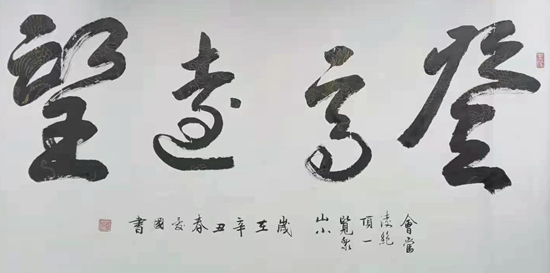 登高遠望
會當
凌絕
頂一
覽眾
山小
歲在辛丑春愛國書